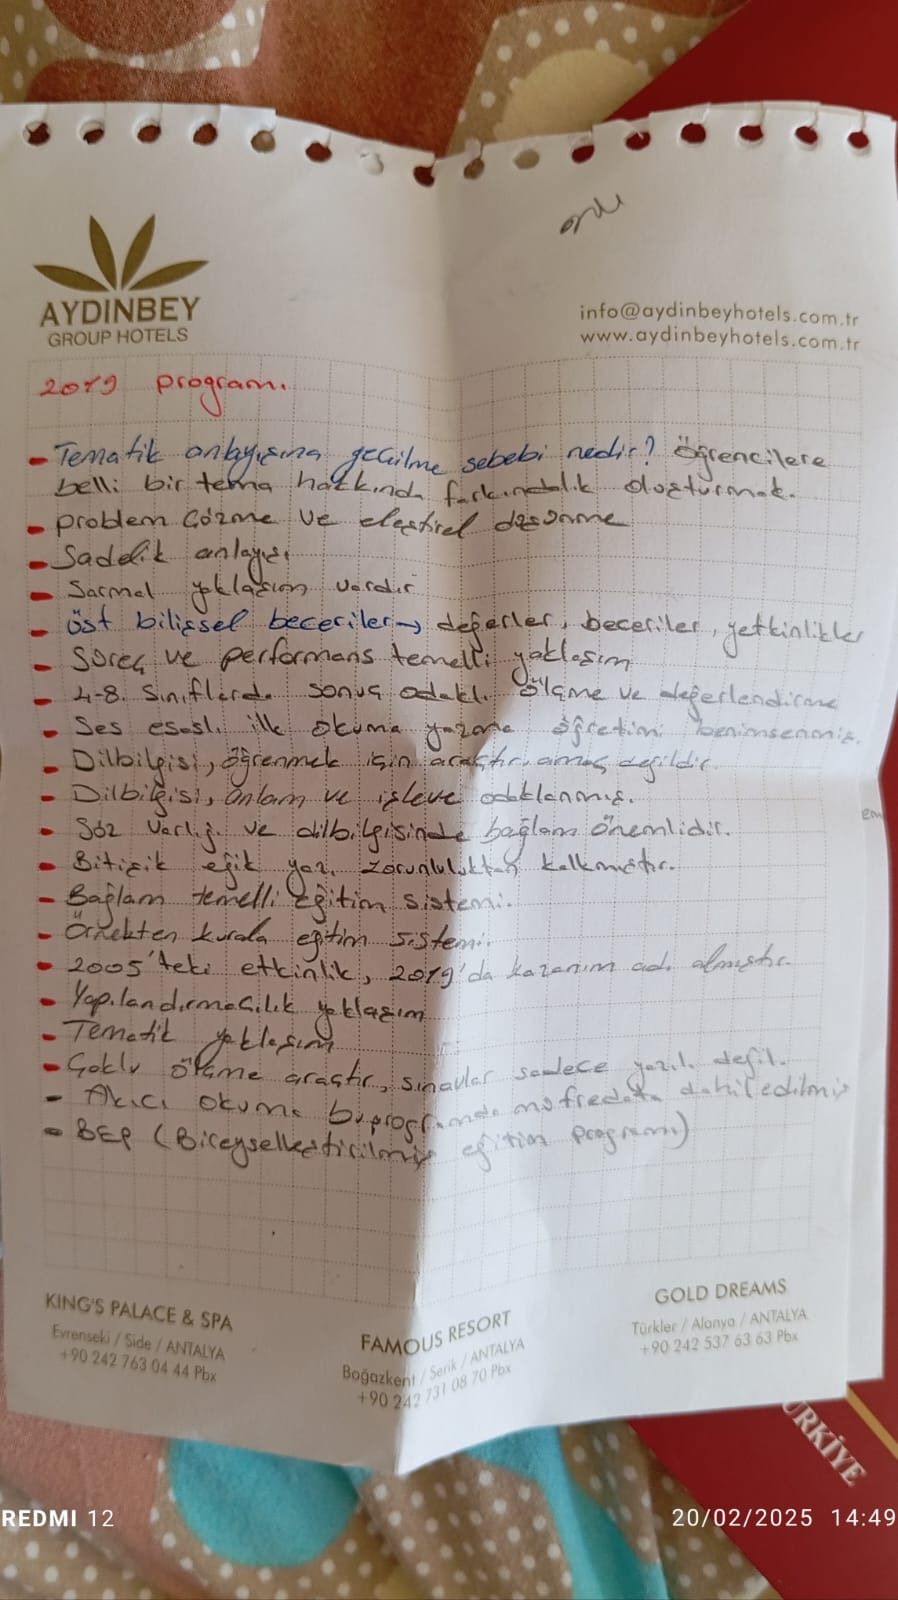 AYDINBEY
GROUP HOTELS
info@aydinbeyhotels.com.tr
www.aydinbeyhotels.com.tr
2019 programı
- Tematik anlayışına geçilme sebebi nedir? Öğrencilere
belli bir tema hakkında farkındalık oluşturmak.
- problem çözme ve eleştirel düşünme
- Sadelik anlayışı
- Sarmal yaklaşım vardır
- Üst bilişsel beceriler → değerler, beceriler, yetkinlikler
- Süreç ve performans temelli yaklaşım
- 4-8. sınıflarda sonuç odaklı ölçme ve değerlendirme
- Ses esaslı ilk okuma yazma öğretimi benimsenmiş.
- Dilbilgisi, öğrenmek için araçtır, amaç değildir.
- Dilbilgisi, anlam ve işleve odaklanmış.
- Söz varlığı ve dilbilgisinde bağlam önemlidir.
- Bitişik eğik yazı zorunluluktan kalkmıştır.
- Bağlam temelli eğitim sistemi.
- Örnekten kurala eğitim sistemi.
- 2005'teki etkinlik, 2019'da kazanım adı almıştır.
- Yapılandırmacılık yaklaşım
- Tematik yaklaşım
- Çoklu ölçme araçtır, sınavlar sadece yazılı değil.
- Akıcı okuma bu programda müfredata dahil edilmiş
- BEP (Bireyselleştirilmiş eğitim programı)
KING'S PALACE & SPA
Evrenseki / Side / ANTALYA
+90 242 763 04 44 Pbx
FAMOUS RESORT
Boğazkent / Serik / ANTALYA
+90 242 731 08 70 Pbx
GOLD DREAMS
Türkler / Alanya / ANTALYA
+90 242 537 63 63 Pbx
TÜRKİYE
REDMI 12
20/02/2025 14:49